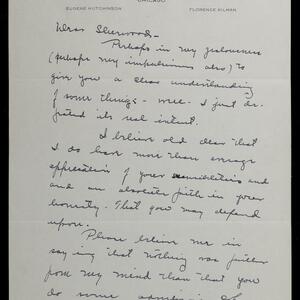 CHICAGO
EUGENE HUTCHINSON FLORENCE KILMAN
Dear Sherwood -
Perhaps in my zealousness
(perhaps my impulsiveness also) to
give you a clear understanding
of some things - well - I just de-
feated its real intent.
I believe old dear that
I do have more than average
appreciation of your sensibilities and
and an absolute faith in your
honesty. That you may depend
upon.
Please believe me in
saying that nothing was further
from my mind than that you
do some